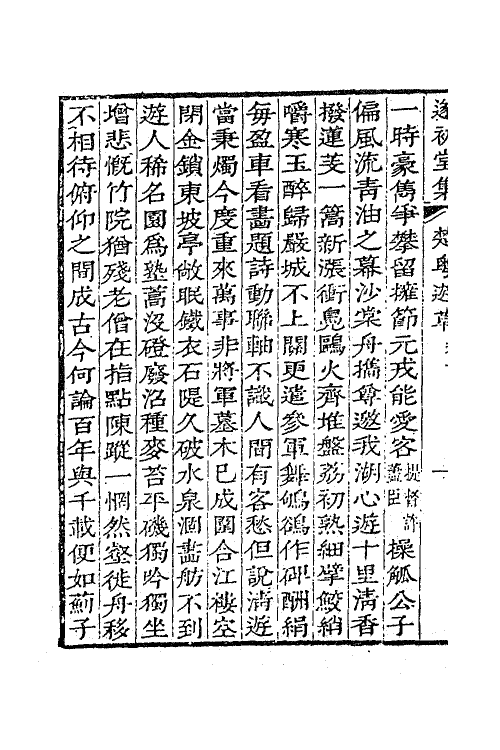 遂初堂集 楚粵遊草
一時豪雋爭攀留擁節元戎能愛客提督許蓋臣操觚公子
偏風流青油之幕沙棠舟攜尊邀我湖心遊十里清香
撥蓮芰一篙新漲衝鳧鷗火齊堆盤荔初熟細擘鮫綃
嚼寒玉醉歸嚴城不上關更遣參軍舞鴝鵒作碑酬絹
每盈車看畵題詩動聯軸不識人間有客愁但說清遊
當秉燭今度重來萬事非將軍墓木已成圍合江樓空
閉金鎖東坡亭敞眠鐵衣石隄久破水泉涸畵舫不到
遊人稀名園為塾蒿沒磴廢沼種麥苔平磯獨吟獨坐
增悲慨竹院猶殘老僧在指點陳蹤一惘然壑徙舟移
不相待俯仰之間成古今何論百年與千載便如薊子